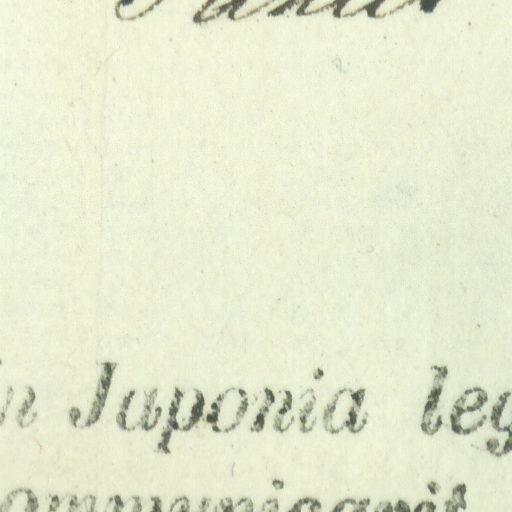 in Japonia leg
ommunicavit